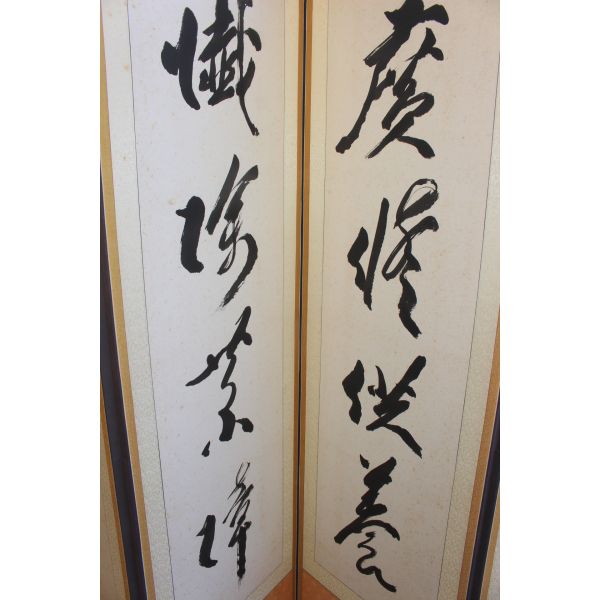 廣修供養
懺除業障